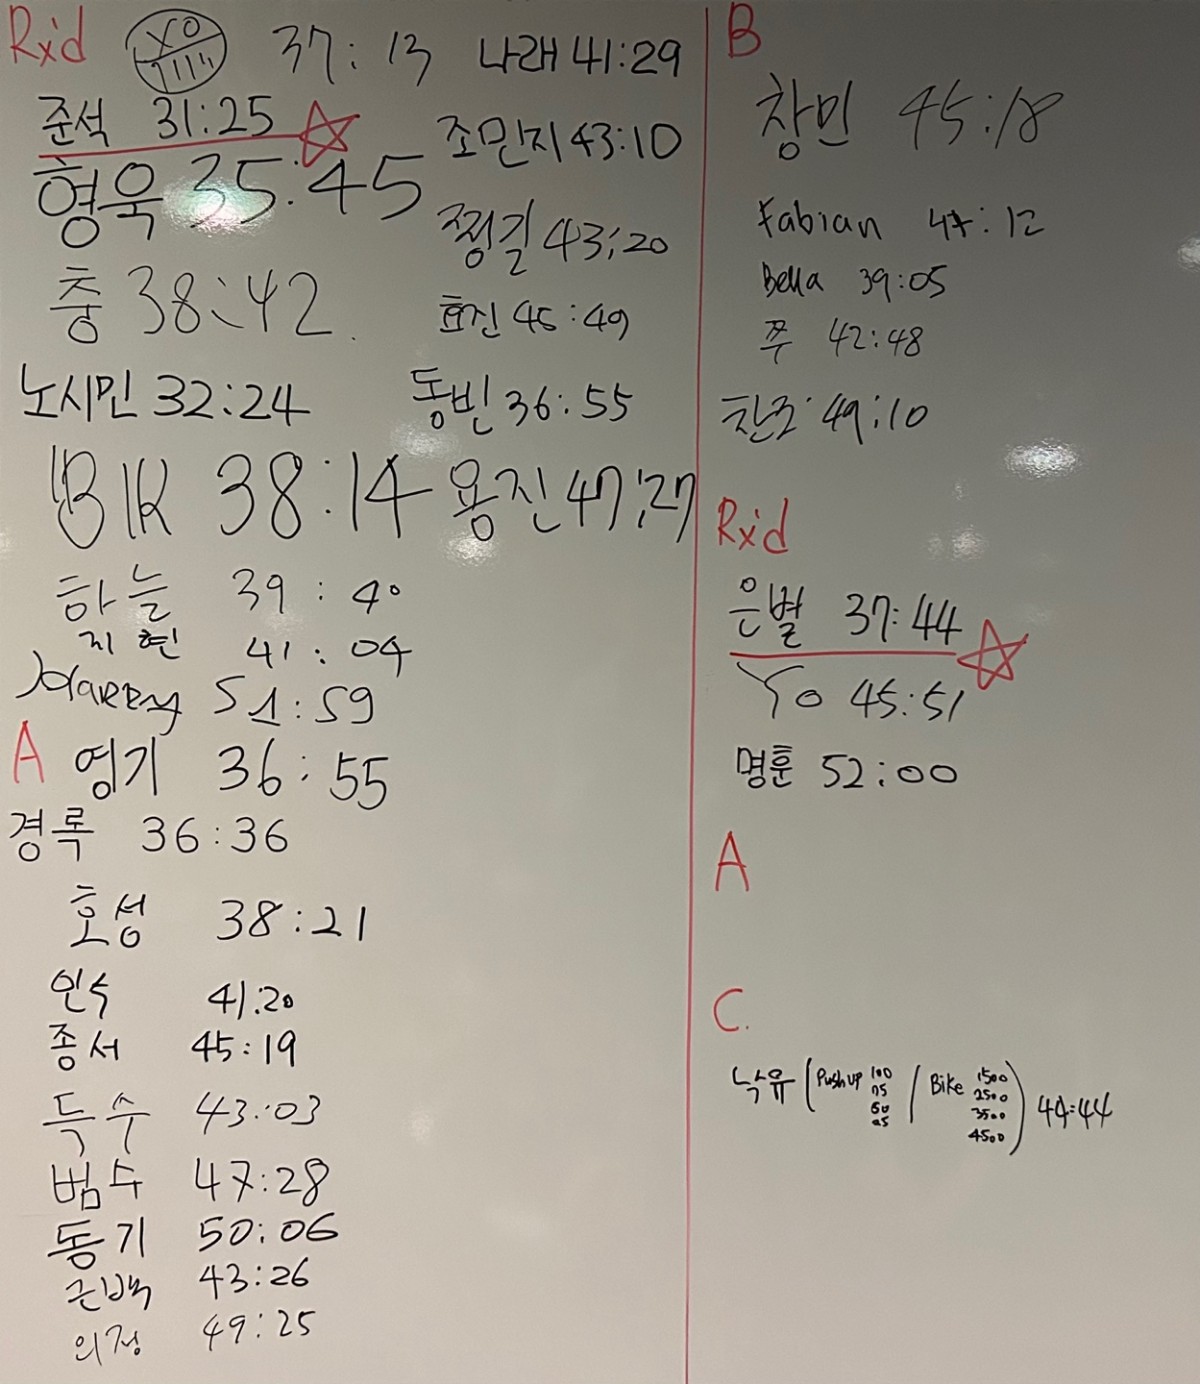 Rxd 37:13 나래 41:29
준석 31:25
조민지 43:10
형욱 35:45
찡길 43:20
충 38:42
효진 45:49
노시민 32:24
동빈 36:55
BK 38:14
용진 47:27
하늘 39:40
지현 41:04
Harry 51:59
A 영기 36:55
경록 36:36
호성 38:21
인수 41:20
종서 45:19
득수 43:03
범수 47:28
동기 50:06
근백 43:26
의정 49:25
B
창민 45:18
Fabian 47:12
Bella 39:05
쭈 42:48
찬호 49:10
Rxd
은별 37:44
Yo 45:51
명훈 52:00
A
C.
낙유 (Push up 100 75 50 25 / Bike 1500 2500 3500 4500) 44:44